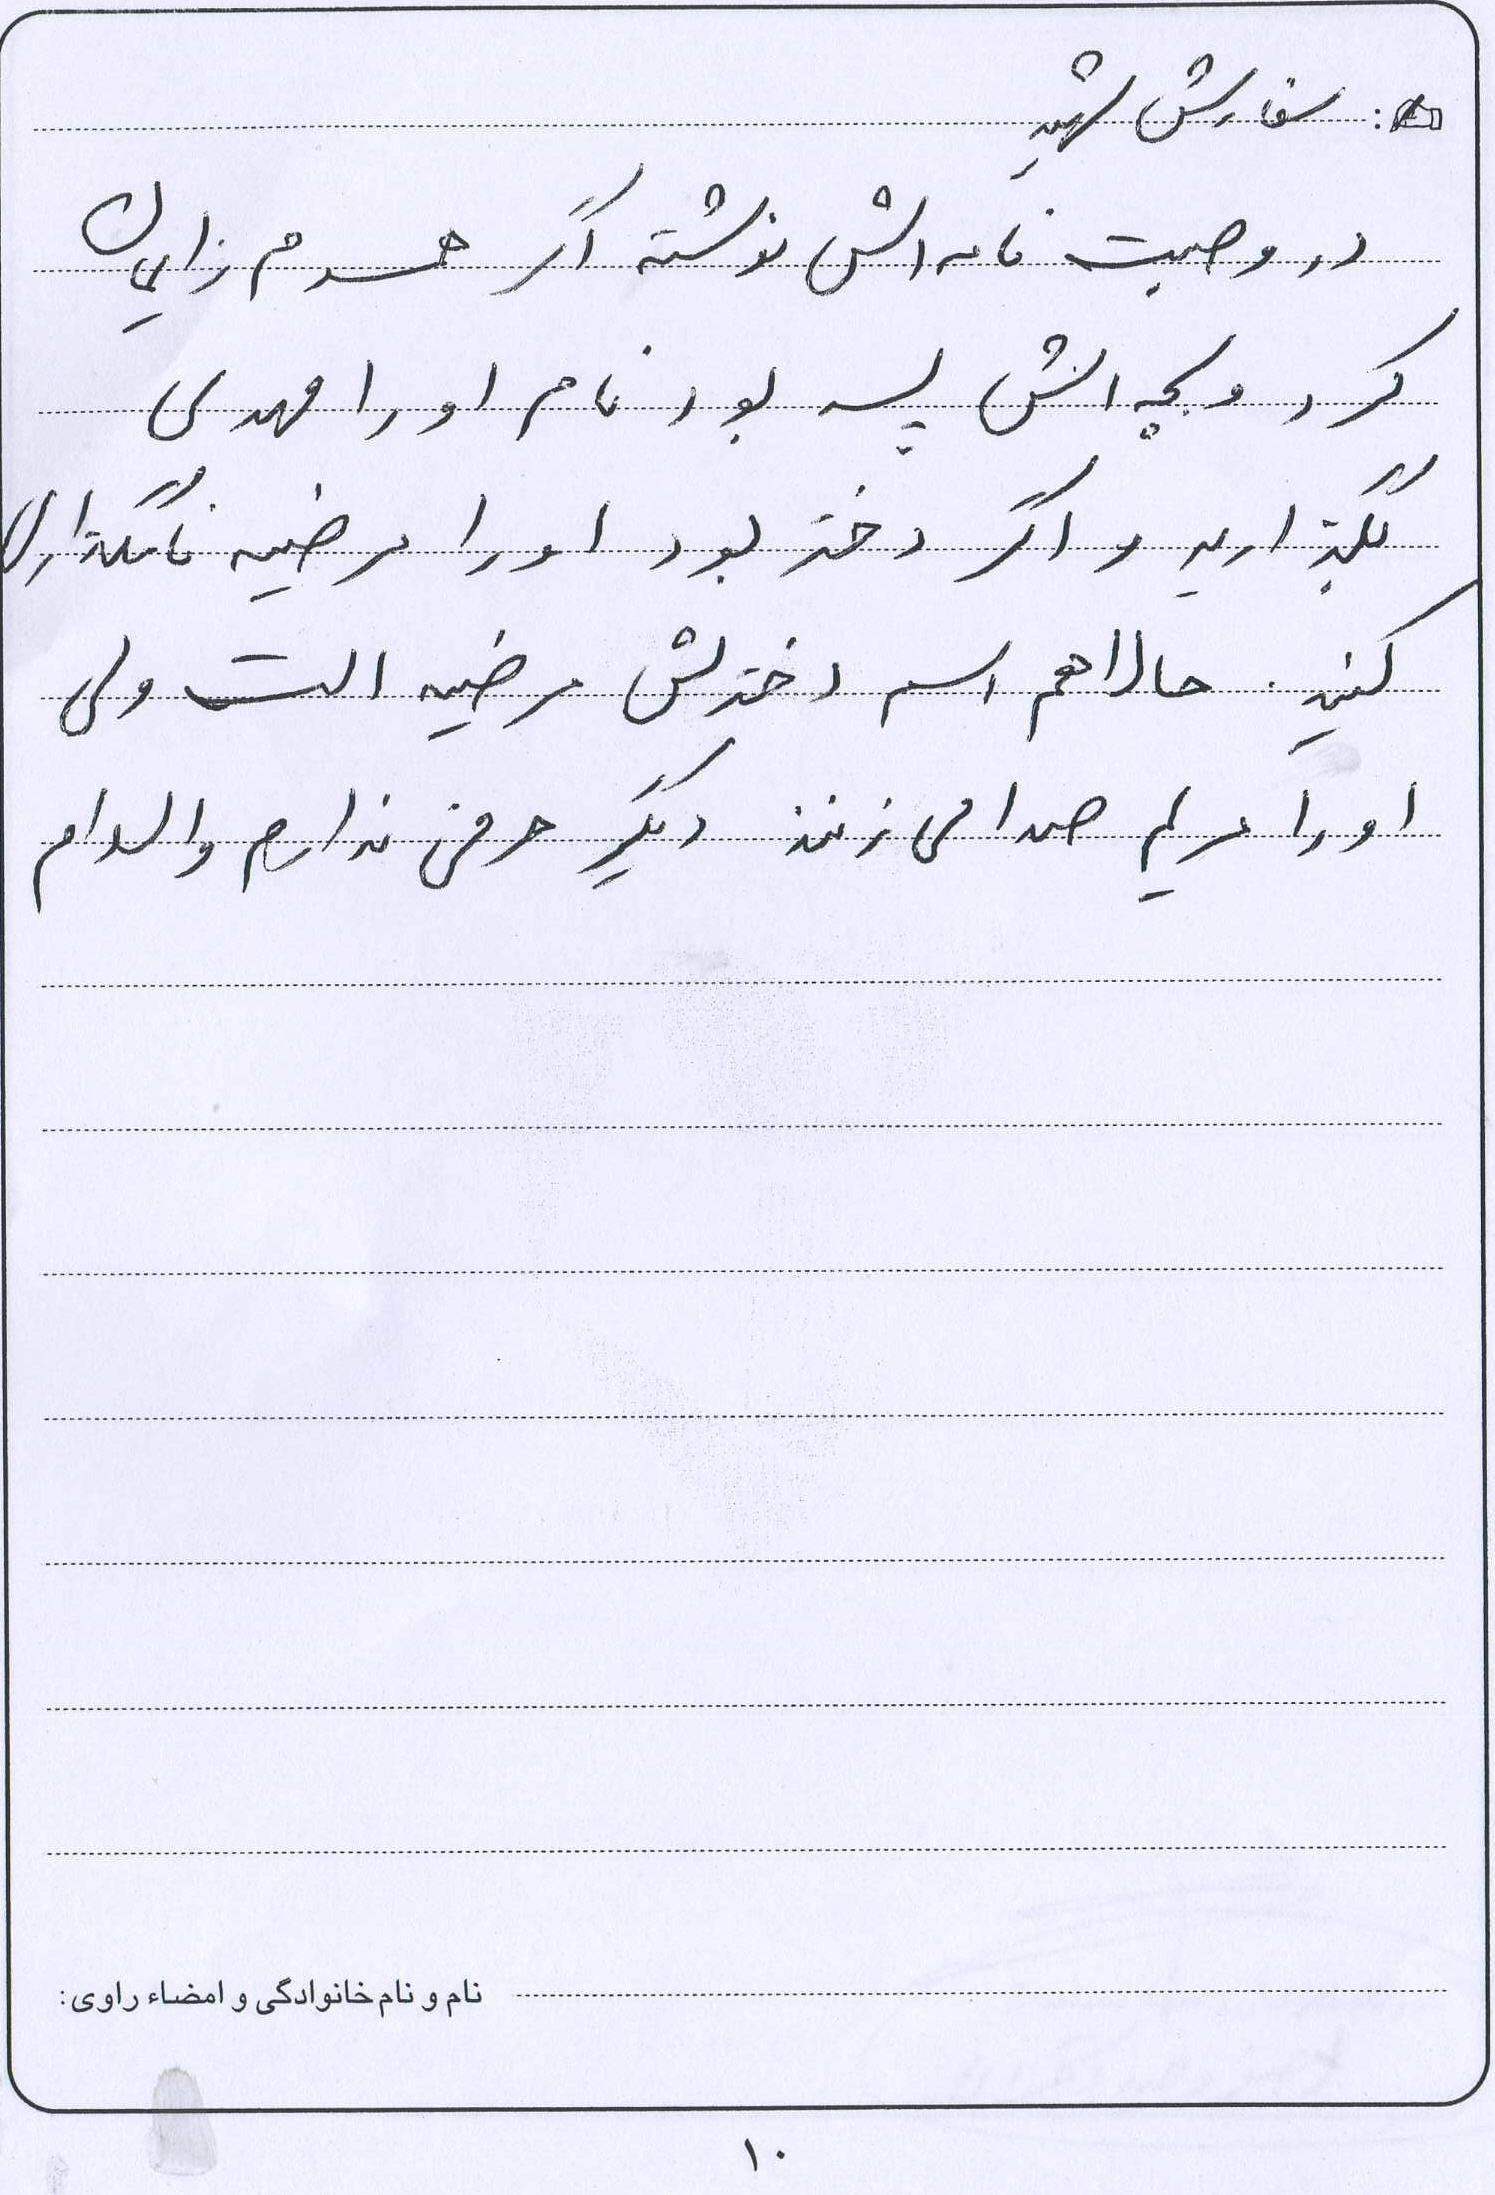 ✍: سفارش شهید
در وصیت نامه اش نوشته اگر همسرم زایمان
کرد و بچه اش پسر بود نام او را مهدی
بگذارید و اگر دختر بود او را مرضیه نامگذاری
کنید. حالا هم اسم دخترش مرضیه است ولی
او را مریم صدا می زنند دیگر حرفی ندارم والسلام
نام و نام خانوادگی و امضاء راوی:
۱۰